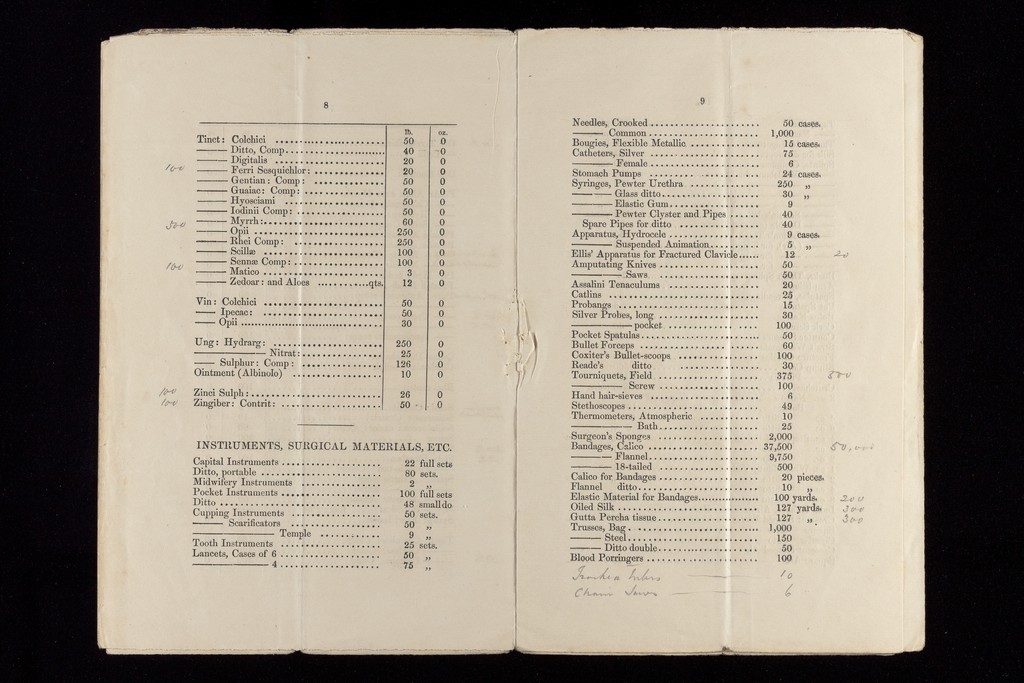 8
lb. oz.
Tinct: Colchici ........................ 50 0
——— Ditto, Comp........................ 40 0
——— Digitalis ........................ 20 0
100 ——— Ferri Sesquichlor: ............... 20 0
——— Gentian: Comp: ............... 50 0
——— Guaiac: Comp: .................. 50 0
——— Hyosciami ........................ 50 0
——— Iodinii Comp: .................. 50 0
——— Myrrh: ........................ 60 0
500 ——— Opii ........................ 250 0
——— Rhei Comp: ..................... 250 0
——— Scillæ ........................ 100 0
100 ——— Sennæ Comp: ..................... 100 0
——— Matico ........................ 3 0
——— Zedoar: and Aloes ............qts. 12 0
Vin: Colchici ........................ 50 0
—— Ipecac: ........................ 50 0
—— Opii .............................. 30 0
Ung: Hydrarg: ........................ 250 0
——————— Nitrat: .................. 25 0
—— Sulphur: Comp: .................. 126 0
Ointment (Albinolo) .................. 10 0
100 Zinci Sulph: ........................ 26 0
100 Zingiber: Contrit: ..................... 50 0
INSTRUMENTS, SURGICAL MATERIALS, ETC.
Capital Instruments ..................... 22 full sets
Ditto, portable ........................ 80 sets.
Midwifery Instruments .................. 2 „
Pocket Instruments ..................... 100 full sets
Ditto .................................... 48 small do
Cupping Instruments .................. 50 sets.
——— Scarificators .................. 50 „
———————— Temple ............ 9 „
Tooth Instruments ..................... 25 sets.
Lancets, Cases of 6 ..................... 50 „
———————— 4 ..................... 75 „
9
Needles, Crooked ........................ 50 cases.
——— Common ........................ 1,000
Bougies, Flexible Metallic ............... 15 cases.
Catheters, Silver ........................ 75
———— Female ..................... 6
Stomach Pumps ........................ 24 cases.
Syringes, Pewter Urethra ............... 250 „
———— Glass ditto ..................... 30 „
———— Elastic Gum ..................... 9
———— Pewter Clyster and Pipes ...... 40
Spare Pipes for ditto .................. 40
Apparatus, Hydrocele .................. 9 cases.
———— Suspended Animation ............ 5 „
Ellis' Apparatus for Fractured Clavicle ...... 12 20
Amputating Knives ..................... 50
————— Saws ..................... 50
Assalini Tenaculums ..................... 20
Catlins .............................. 25
Probangs .............................. 15
Silver Probes, long ..................... 30
—————— pocket ..................... 100
Pocket Spatulas ........................ 50
Bullet Forceps ........................ 60
Coxiter's Bullet-scoops .................. 100
Reade's ditto .................. 30
Tourniquets, Field ..................... 375 500
————— Screw ..................... 100
Hand hair-sieves ........................ 6
Stethoscopes ........................... 49
Thermometers, Atmospheric ............ 10
—————— Bath ..................... 25
Surgeon's Sponges ..................... 2,000
Bandages, Calico ........................ 37,500 50,000
———— Flannel ........................ 9,750
———— 18-tailed ..................... 500
Calico for Bandages ..................... 20 pieces.
Flannel ditto ........................... 10 „
Elastic Material for Bandages .................. 100 yards. 200
Oiled Silk .............................. 127 yards. 300
Gutta Percha tissue ..................... 127 „ 300
Trusses, Bag ........................... 1,000
——— Steel ........................... 150
——— Ditto double ..................... 50
Blood Porringers ........................ 100
Trachea tubes —— 10
Chain Saws —— 6